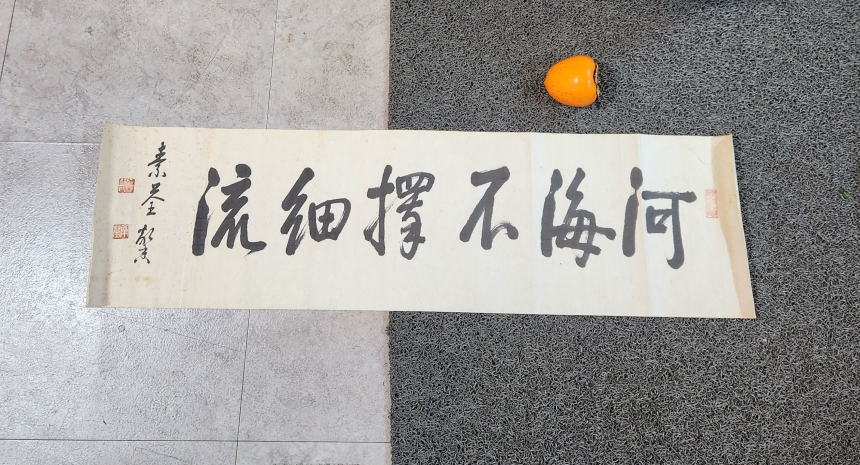 河海不擇細流
素荃